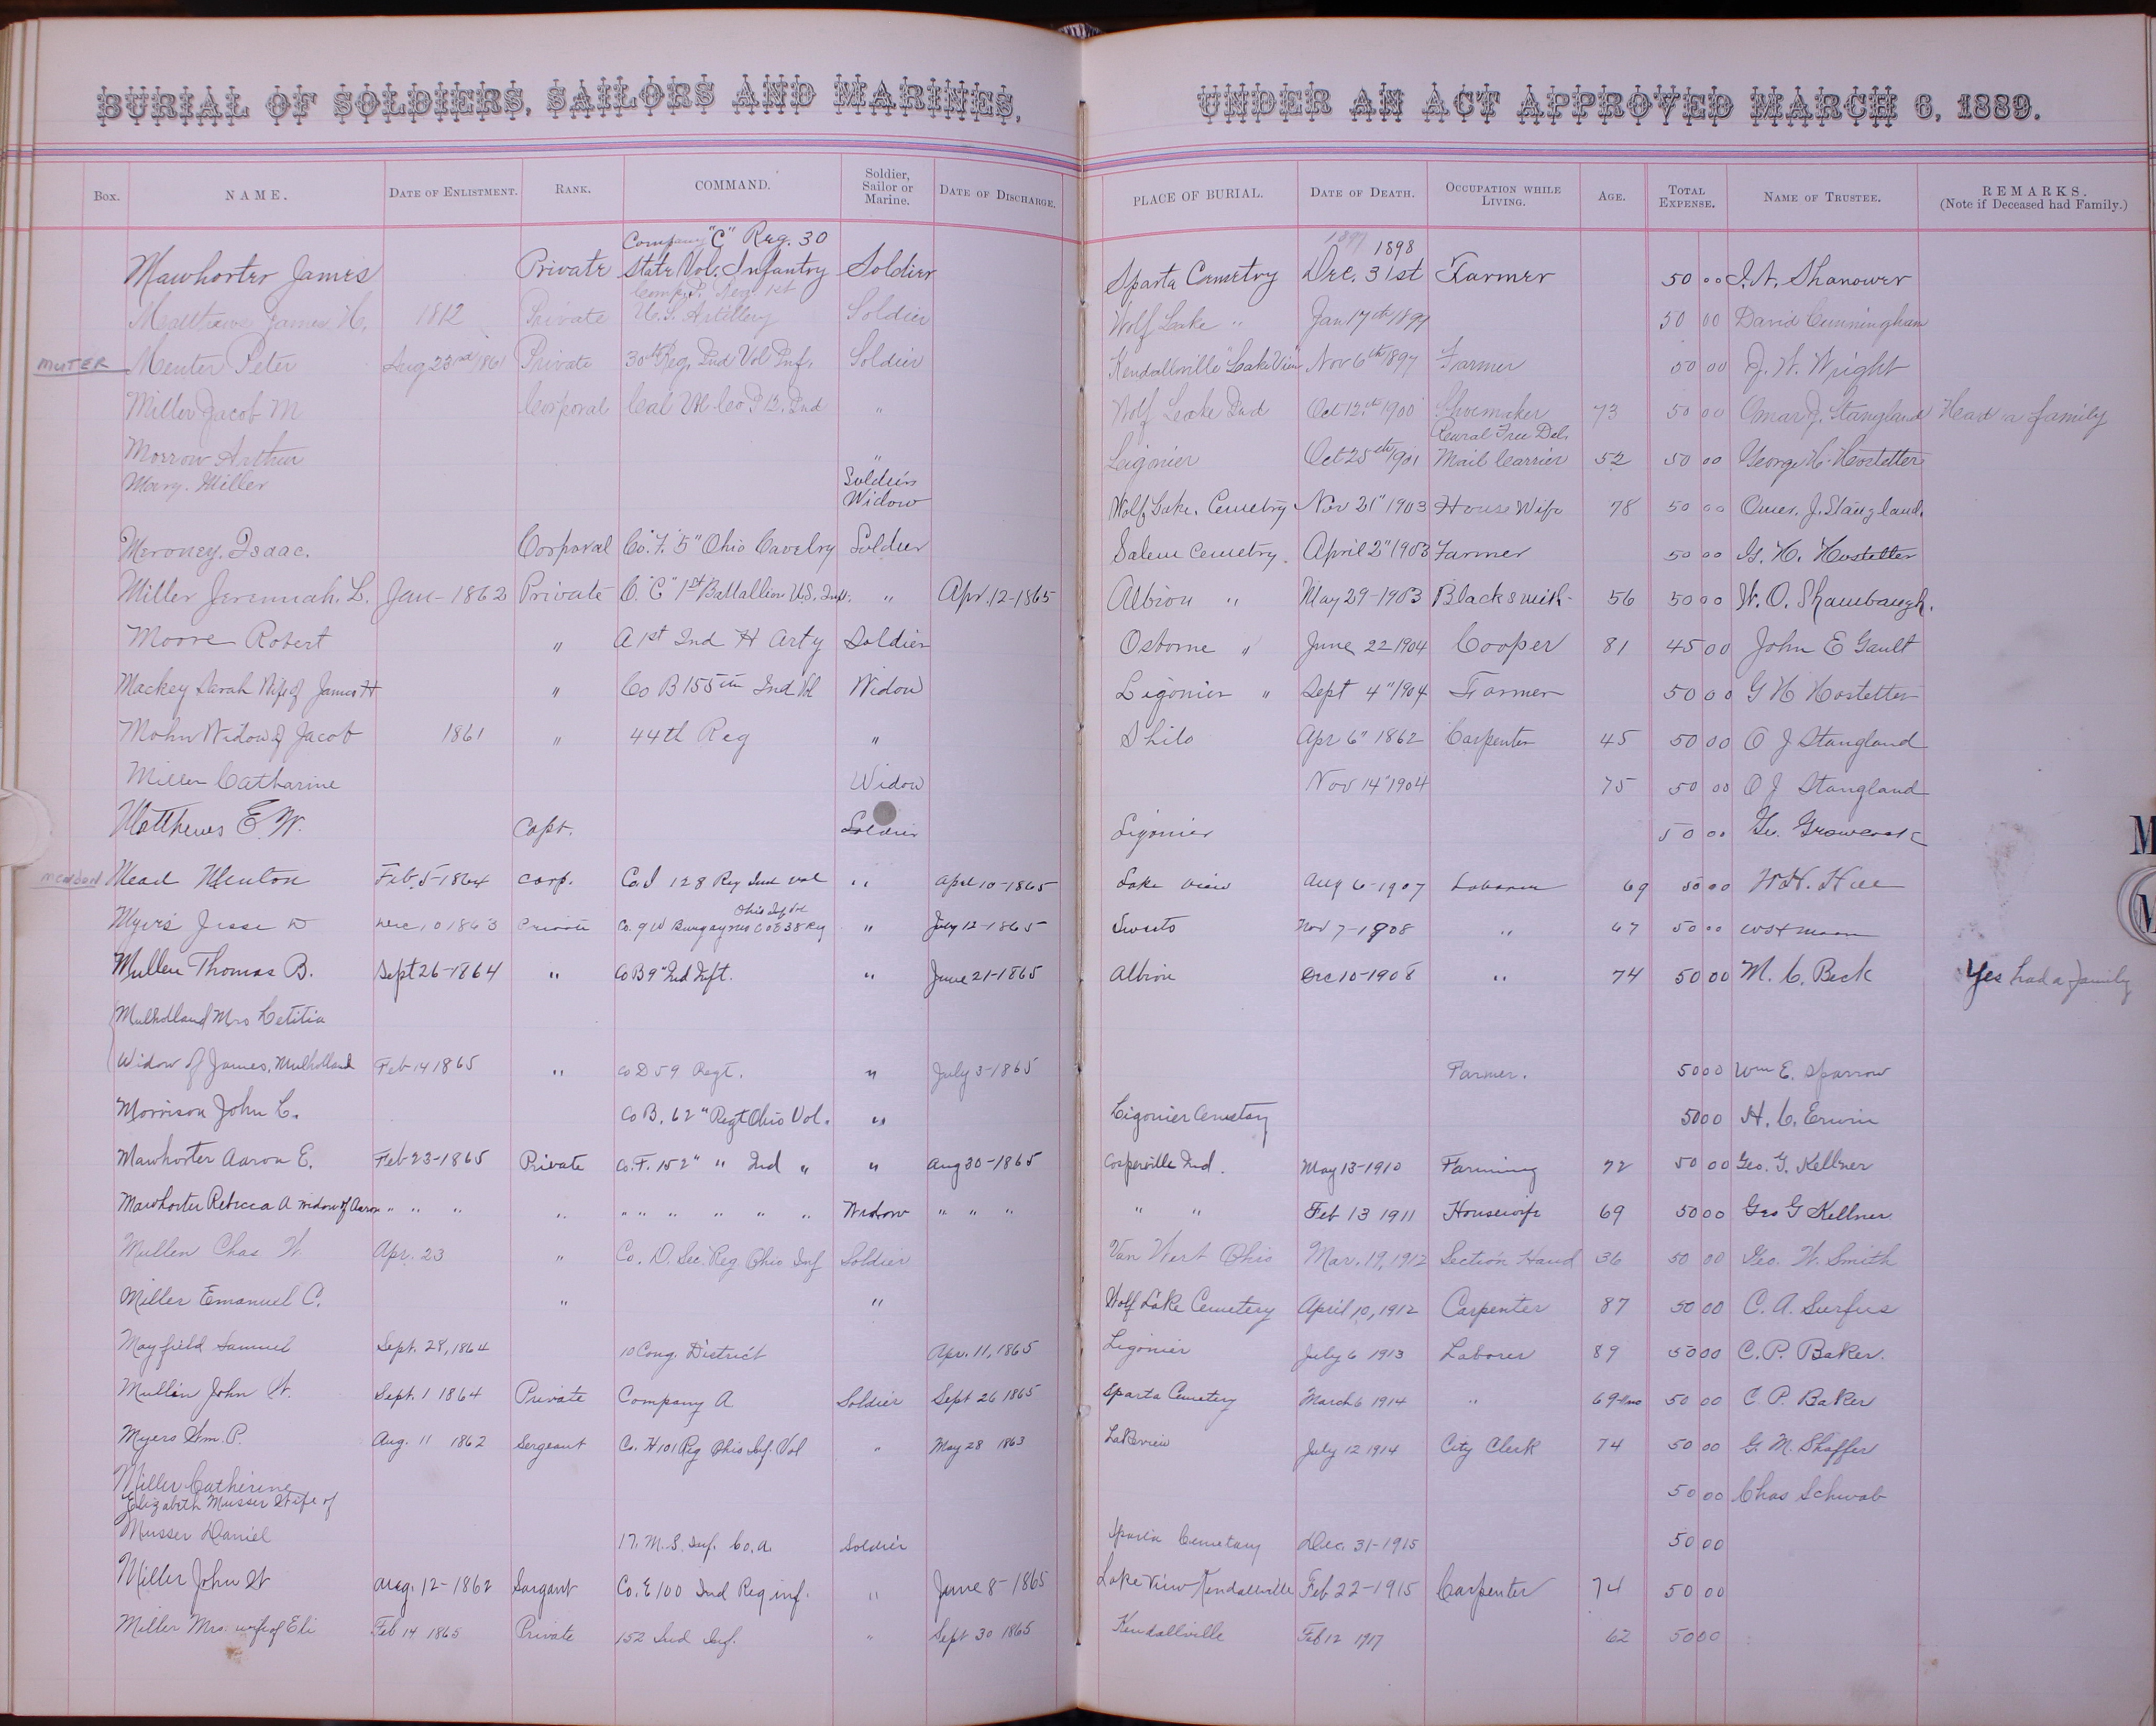 BURIAL OF SOLDIERS, SAILORS AND MARINES, UNDER AN ACT APPROVED MARCH 6, 1889.
Box. NAME. DATE OF ENLISTMENT. RANK. COMMAND. Soldier, Sailor or Marine. DATE OF DISCHARGE. PLACE OF BURIAL. DATE OF DEATH. OCCUPATION WHILE LIVING. AGE. TOTAL EXPENSE. NAME OF TRUSTEE. REMARKS. (Note if Deceased had Family.)
Company "C" Reg. 30 1897 1898
Mawhorter James Private State Vol. Infantry Soldier Sparta Cemetry Dec. 31st Farmer 50 00 I. N. Shanower
Reg. 1st
Matthews James H. 1812 Private U.S. Artillery Soldier Wolf Lake " Jan 17th 1899 50 00 David Cunningham
MUTER Menter Peter Aug 23rd 1861 Private 30th Reg. Ind Vol Inf. Soldier Kendallville "Lake View" Nov 6th 1897 Farmer 50 00 J. W. Wright
Miller Jacob M Corporal " Wolf Lake Ind Oct 12th 1900 Shoemaker 73 50 00 Omar J. Stangland Had a family
Rural Free Del.
Morrow Arthur " Ligonier Oct 25th 1901 Mail Carrier 52 50 00 George H. Hostetter
Mary. Miller Soldier's Widow Wolf Lake. Cemetry Nov 21" 1903 House Wife 78 50 00 Omer. J. Stangland.
Meroney. Isaac. Corporal Co. "F." 5" Ohio Cavelry Soldier Salem Cemetry. April 2" 1903 Farmer 50 00 G. H. Hostetter
Miller Jeremiah. L. Jan - 1862 Private C. "C" 1st Battallion U.S. Inf. " Apr. 12-1865 Albion " May 29-1903 Blacksmith 56 50 00 W. O. Shambaugh.
Moore Robert " A 1st Ind H Arty Soldier Osborne " June 22 1904 Cooper 81 45 00 John E Gault
Mackey Sarah Wife of James H " Co B 155th Ind Vol Widow Ligonier " Sept 4" 1904 Farmer 50 00 G H Hostetter
Mohn Widow of Jacob 1861 " 44th Reg " Shilo Apr 6" 1862 Carpenter 45 50 00 O J Stangland
Miller Catharine Widow Nov 14" 1904 75 50 00 O J Stangland
Matthews E. W. Capt. Soldier Ligonier 50 00 Geo. Growcock
Mead Menton Feb. 5-1864 Corp. Co. I 128 Reg Ind Vol " April 10-1865 Lake View Aug 6-1907 Laborer 69 50 00 W. H. Hile
Ohio Inf Vol
Myers Jesse D Dec 10 1863 Private " July 12-1865 Swets Nov 7-1908 " 67 50 00
Mullen Thomas B. Sept 26-1864 " Co B 9" Ind Inft. " June 21-1865 Albion Dec 10-1908 " 74 50 00 M. C. Beck Yes had a family
Mulholland Mrs Letitia
Widow of James. Mulholland Feb 14 1865 " Co D 59 Regt. " July 3-1865 Farmer. 50 00 Wm E. Sparrow
Morrison John C. Co B. 62" Regt Ohio Vol. " Ligonier Cemetary 50 00 H. C. Erwin
Mawhorter Aaron E. Feb 23-1865 Private Co. F. 152" " Ind " " Aug 30-1865 Cosperville Ind. May 13-1910 Farming 72 50 00 Geo. G. Kellner
Mawhorter Rebecca A widow of Aaron " " " " " " " " " " Widow " " " " " Feb 13 1911 Housewife 69 50 00 Geo G Kellner
Mullen Chas W. Apr. 23 " Co. D. Sec. Reg. Ohio Inf Soldier Van Wert Ohio Mar. 19, 1912 Section Hand 36 50 00 Geo. W. Smith
Miller Emanuel C. " " Wolf Lake Cemetery April 10, 1912 Carpenter 87 50 00 C. A. Surfus
Mayfield Samuel Sept. 28, 1864 10 Cong. District Apr. 11, 1865 Ligonier July 6 1913 Laborer 89 50 00 C. P. Baker.
Mullin John W. Sept. 1 1864 Private Company A Soldier Sept 26 1865 Sparta Cemetery March 6 1914 " 69 50 00 C. P. Baker
Myers Wm. P. Aug. 11 1862 Sergeant Co. H 101 Reg Ohio Inf. Vol " May 28 1863 Lakeview July 12 1914 City Clerk 74 50 00 G. M. Shaffer
Miller Catherine 50 00 Chas Schwab
Elizabeth Musser Wife of
Musser Daniel 17. M. S. Inf. Co. A. Soldier Sparta Cemetary Dec. 31-1915 50 00
Miller John W Aug. 12-1862 Sargant Co. E 100 Ind Reg inf. " June 8-1865 Lake View Kendallville Feb 22-1915 Carpenter 74 50 00
Miller Mrs. wife of Eli Feb 14 1865 Private 152 Ind Inf. " Sept 30 1865 Kendallville Feb 12 1917 62 50 00
M
M